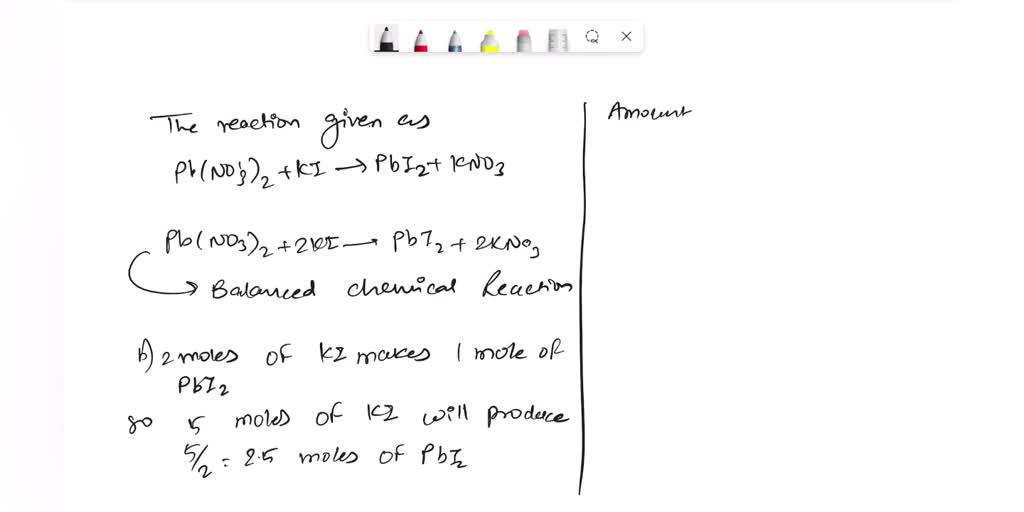 The reaction given as
Pb(NO3)2 + KI → PbI2 + KNO3
Pb(NO3)2 + 2KI → PbI2 + 2KNO3
→ Balanced chemical Reaction
b) 2 moles of KI makes 1 mole of
PbI2
so 5 moles of KI will produce
5/2 = 2.5 moles of PbI2
Amount